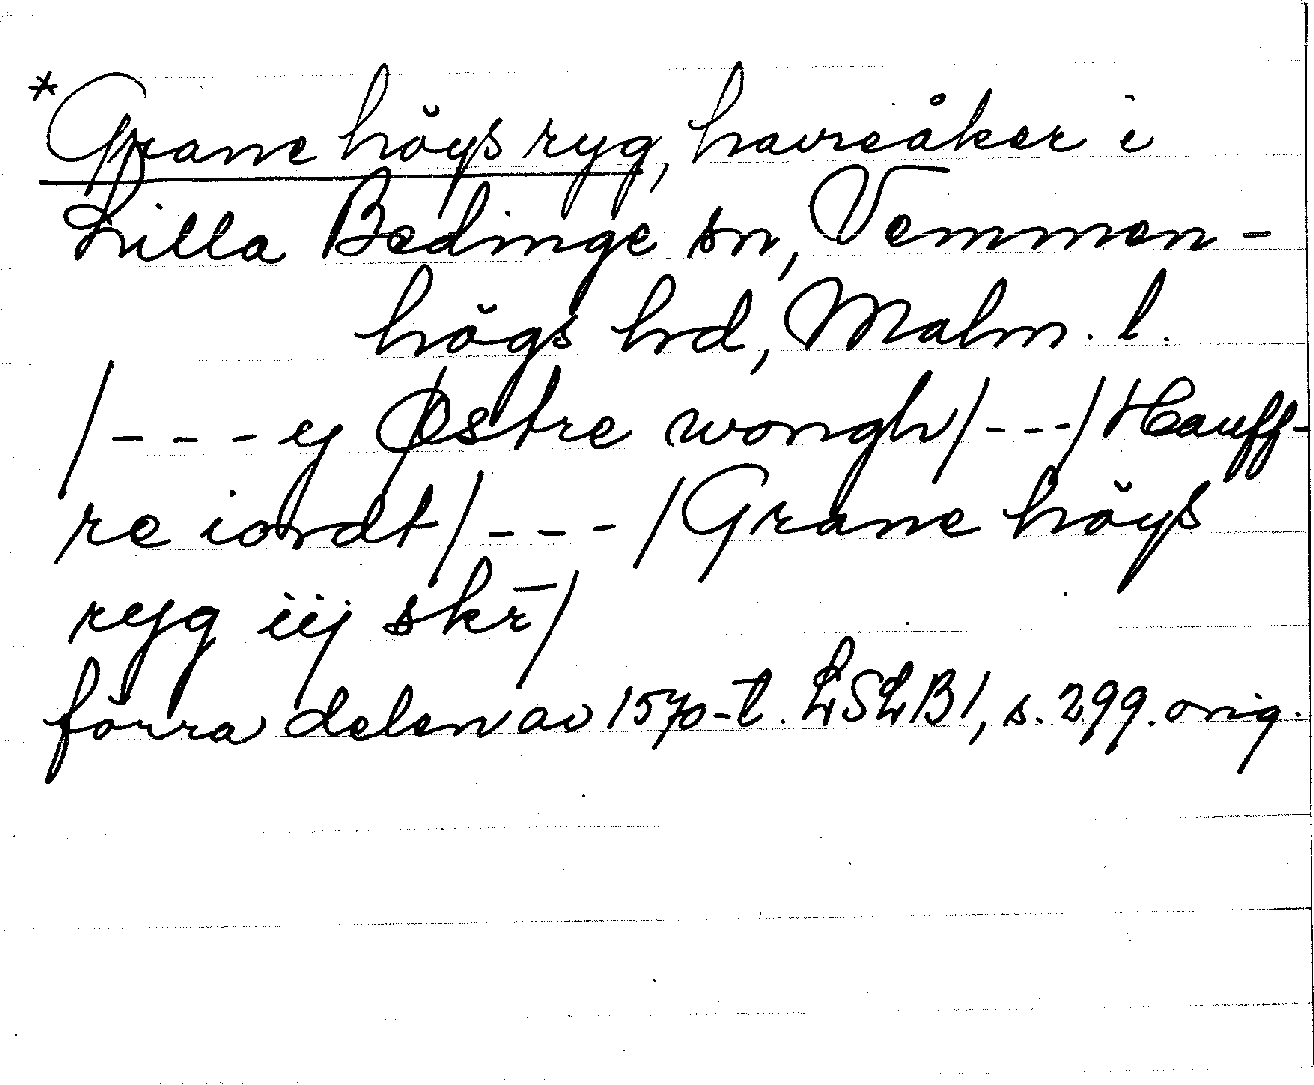 *Grane höys ryg, havreåker i
Lilla Bedinge sn, Vemmen-
högs hd, Malm. l.
/---ej Østre wongh/---/Hauff-
re iordt/---/Grane höys
ryg iij skr̄/
förra delen av 1570-t. LSLB1, s. 299. orig.